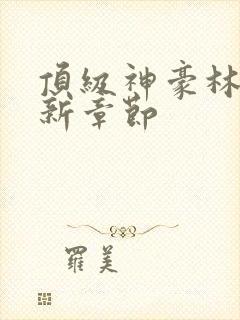 頂級神豪林
新章節
羅美